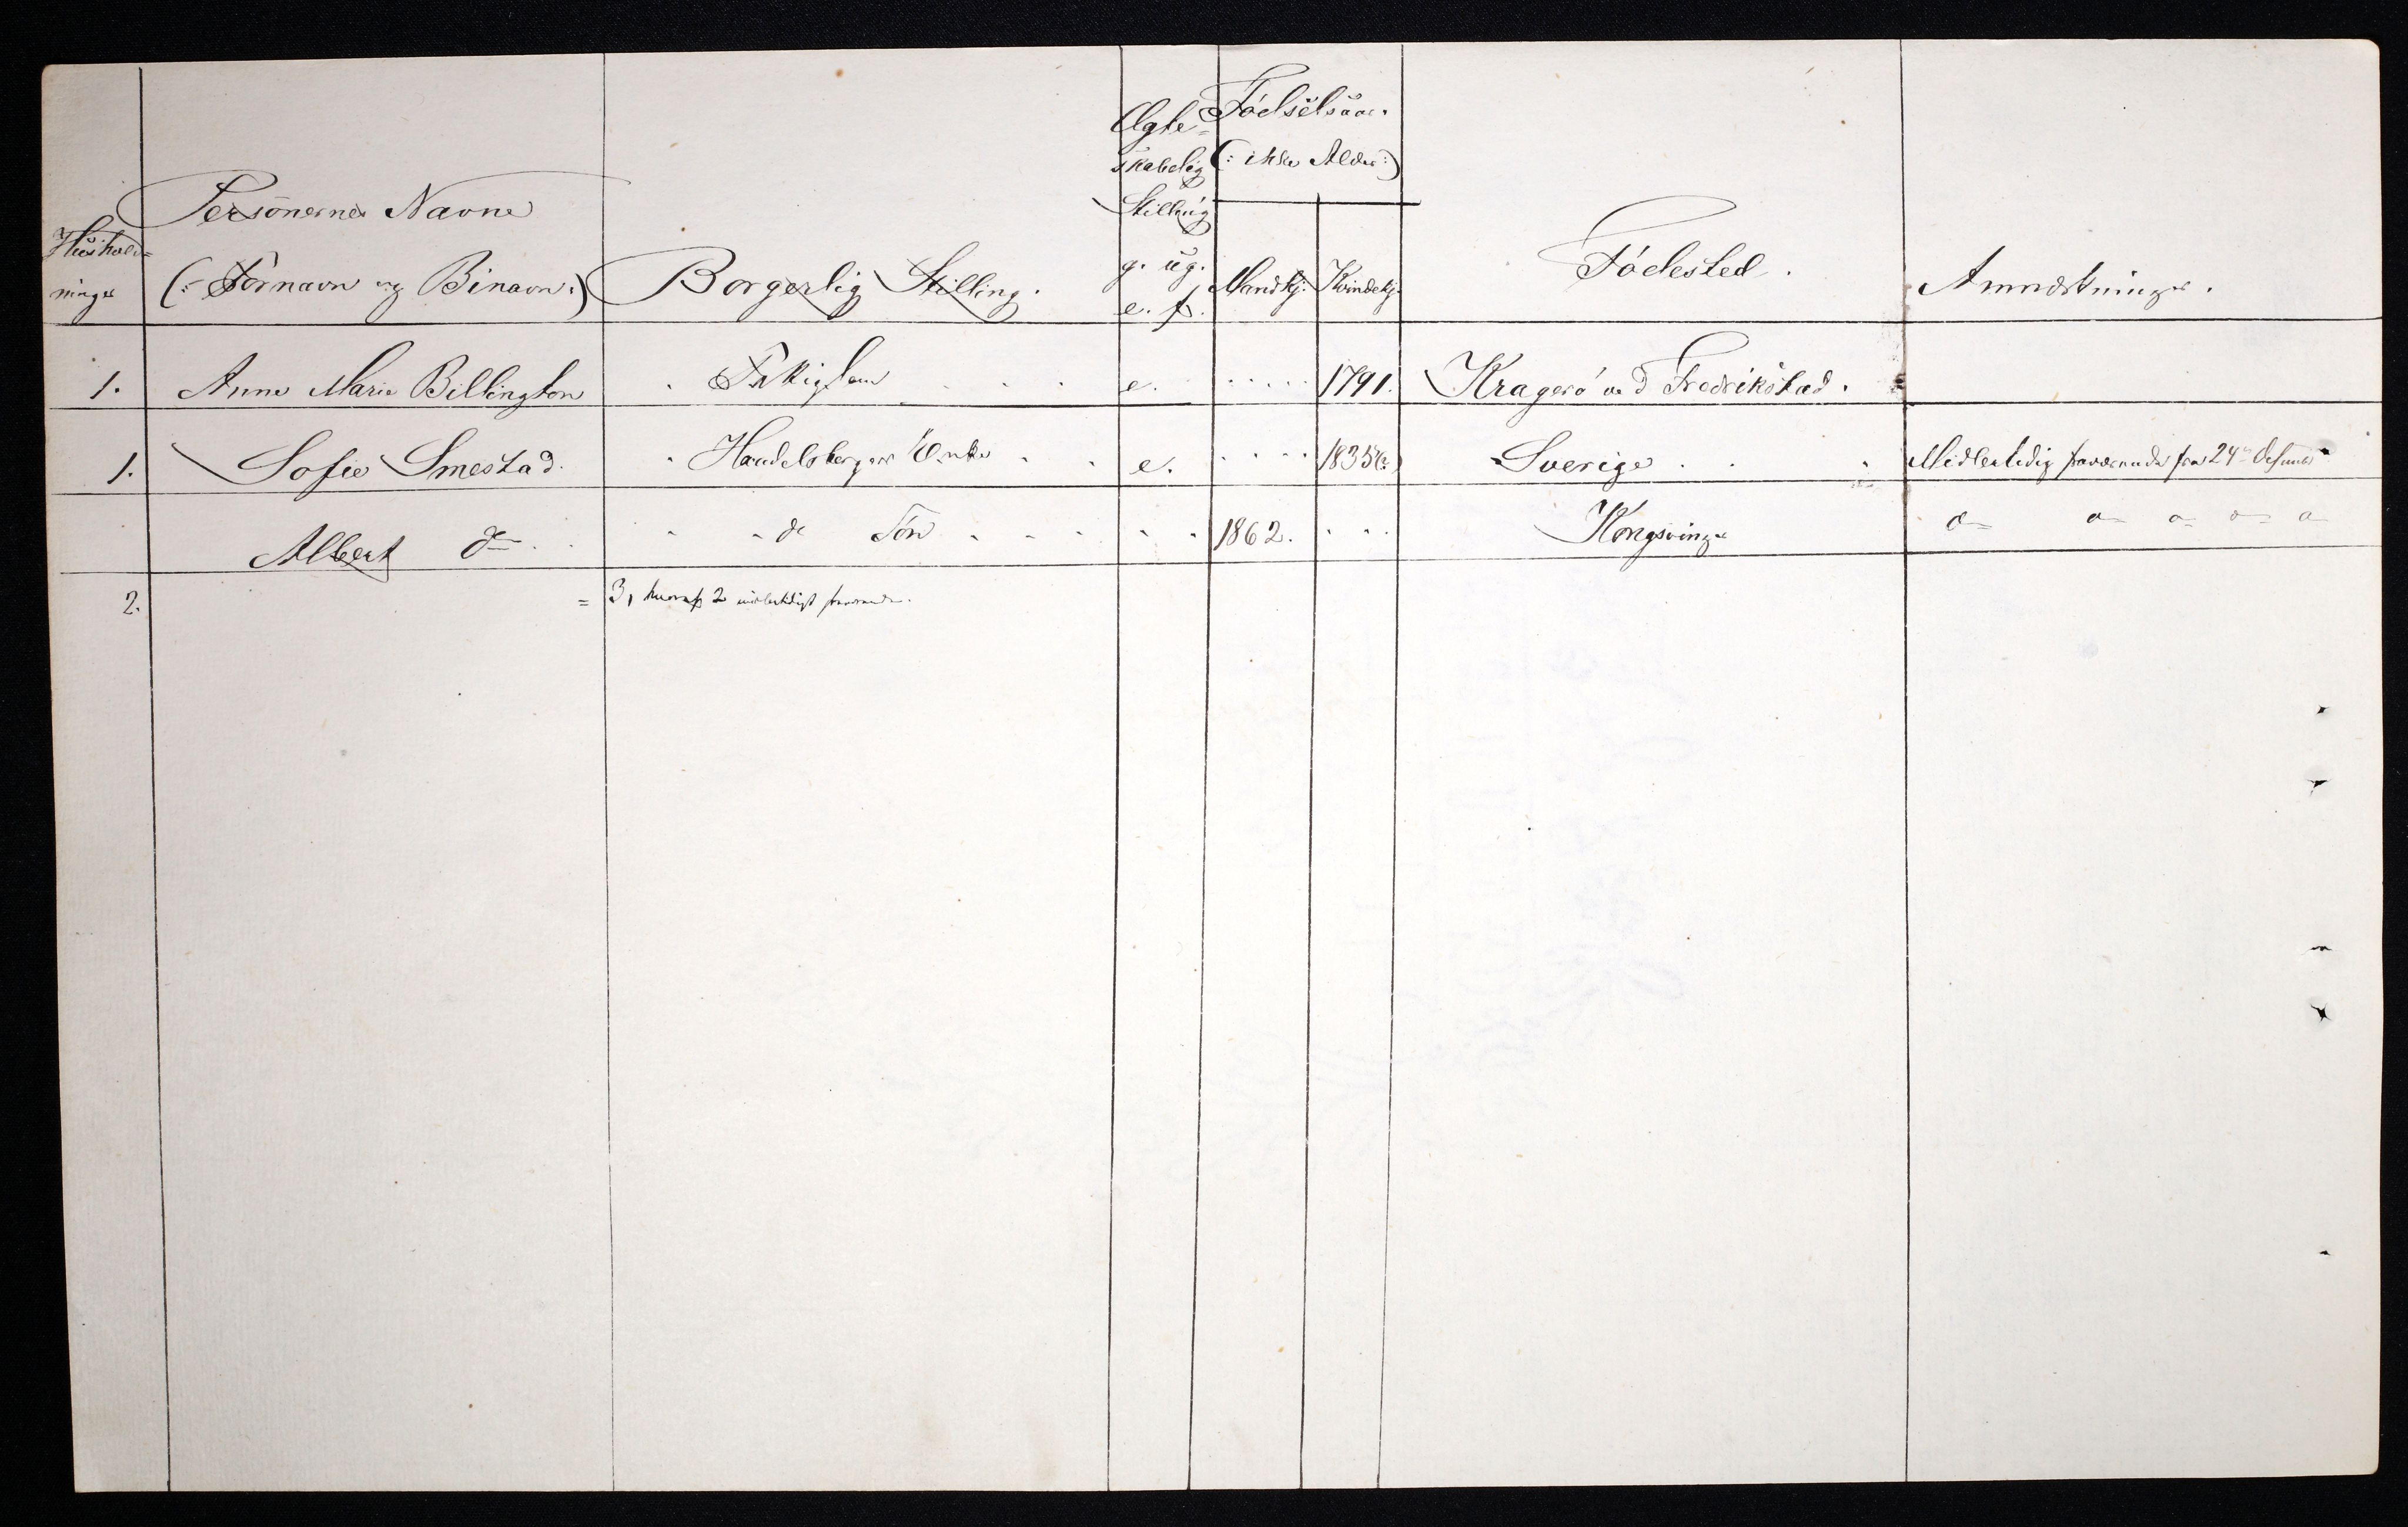 Huushold=
ninger
Personernes Navne
(: Fornavn og Binavn :)
Borgerlig Stilling.
Ægte=
skabelig
Stilling
g. ug.
e. f.
Fødselsaar.
(: ikke Alder :)
Mandkj. Kvindekj.
Fødested.
Anmærkninger.
1. Anne Marie Billington Fattiglem e. 1791. Kragerø ved Fredrikstad.
1. Sofie Smestad. Handelsborger Enke e. 1835 Sverige Midlertidig fraværende fra 24de
Albert do. do Søn 1862. Kongsvinger do do do do do
2. = 3, hvoraf 2 midlertidigt fraværende.